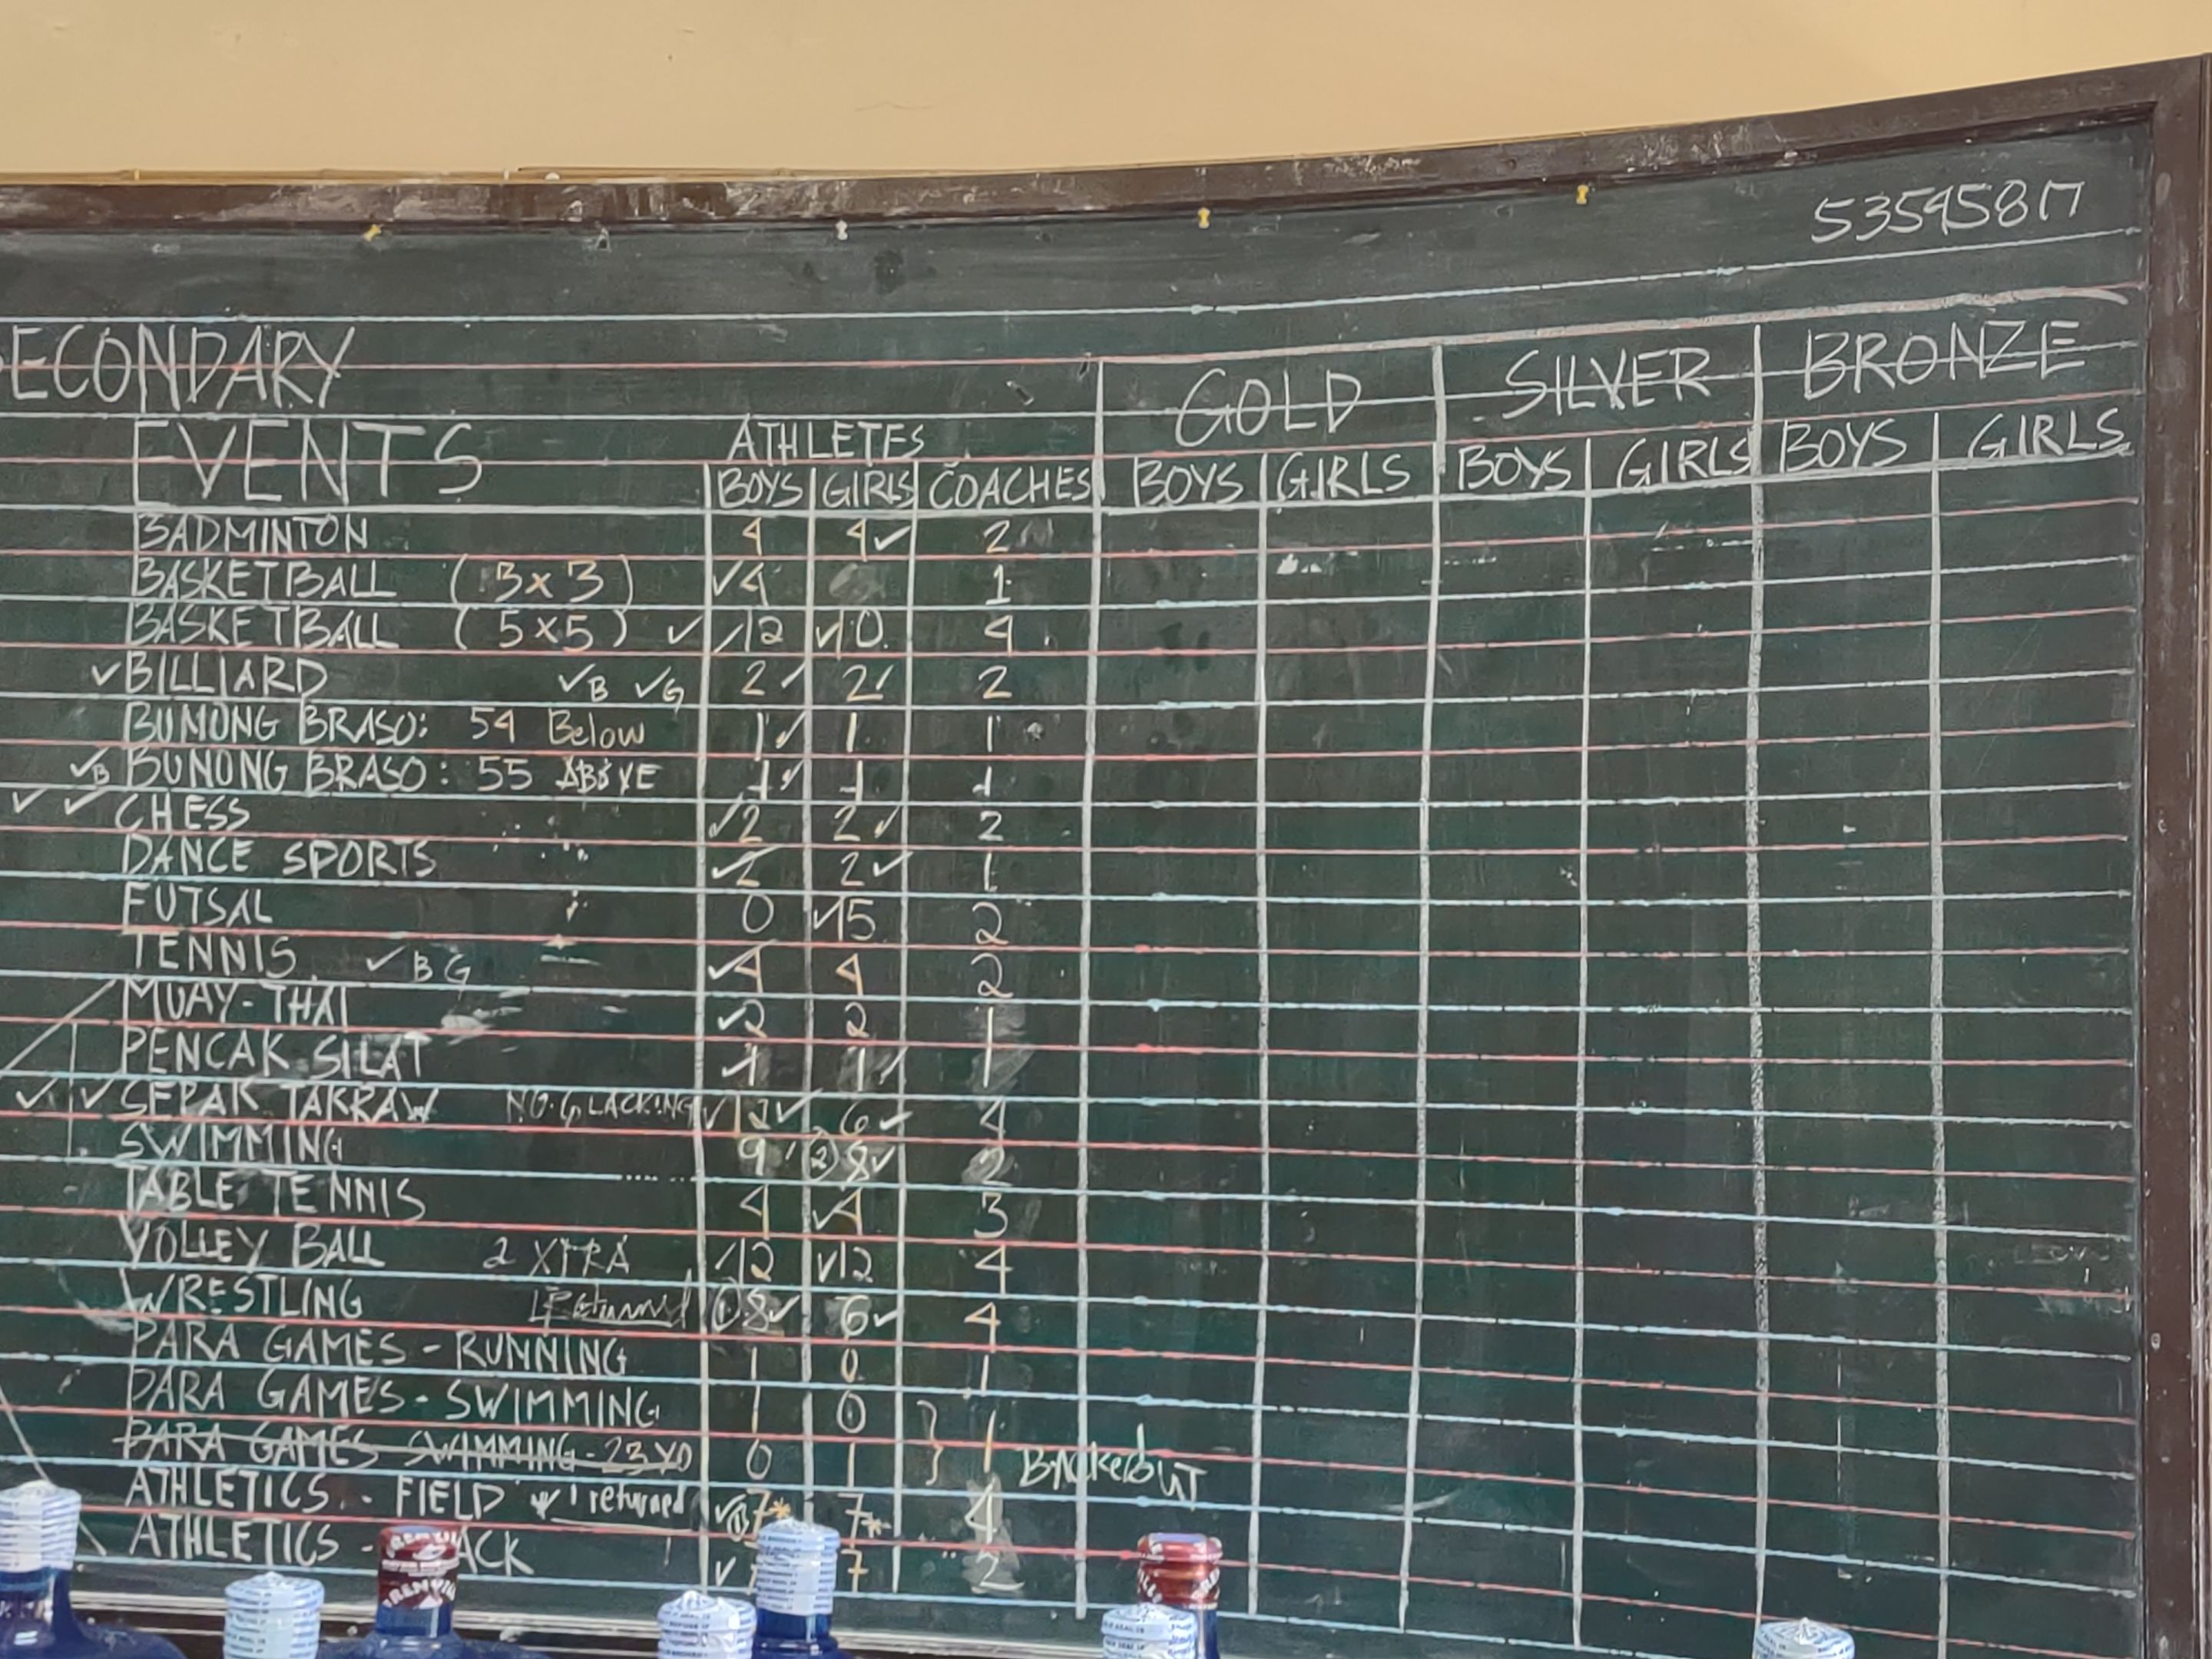 53595817
ECONDARY GOLD SILVER BRONZE
EVENTS ATHLETES
BOYS GIRLS COACHES BOYS GIRLS BOYS GIRLS BOYS GIRLS
BADMINTON 4 4✓ 2
BASKETBALL (3x3) ✓4 1
BASKETBALL (5x5) ✓ ✓12 ✓10 4
✓BILLIARD ✓B ✓G 2✓ 2✓ 2
BUNONG BRASO: 54 Below 1✓ 1 1
✓B BUNONG BRASO: 55 ABOVE 1✓ 1 1
✓ ✓ CHESS ✓2 2✓ 2
DANCE SPORTS ✓2 2✓ 1
FUTSAL 0 ✓15 2
TENNIS ✓ B G ✓4 4 2
MUAY-THAI ✓2 2 1
PENCAK SILAT ✓1 1✓ 1
✓ ✓ SEPAK TAKRAW NO. G LACKING ✓12✓ 6✓ 4
SWIMMING 9 ② 8✓ 2
TABLE TENNIS 4 ✓4 3
VOLLEY BALL 2 XTRA ✓12 ✓12 4
WRESTLING 1 Returned ① 8✓ 6✓ 4
PARA GAMES - RUNNING 1 0 1
PARA GAMES - SWIMMING 1 0
PARA GAMES SWIMMING - 23 YO 0 1 } 1 BackedouT
ATHLETICS - FIELD 1 returned ✓① 7* 7* 4
ATHLETICS - ACK ✓ 7 2